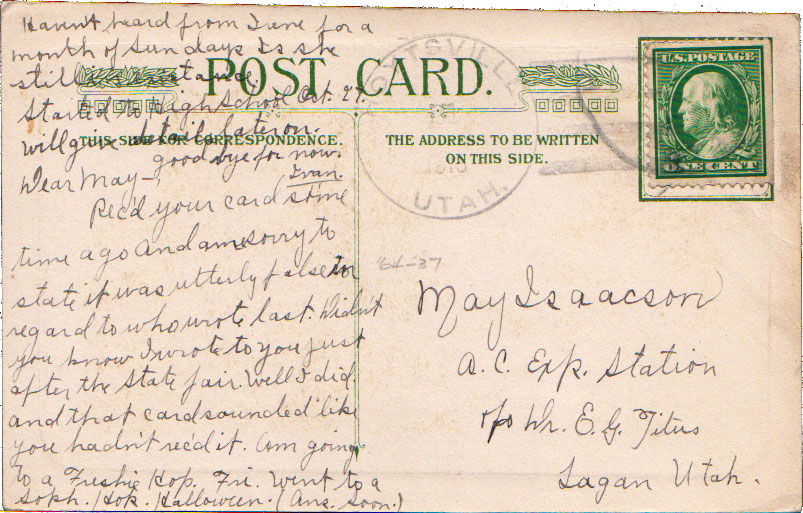 Haven't heard from Irene for a
month of Sundays Is she
still in existance.
Started to High School Oct. 27.
will give details later on.
good bye for now.
Ivan.
POST CARD.
THIS SIDE FOR CORRESPONDENCE.
THE ADDRESS TO BE WRITTEN
ON THIS SIDE.
HOYTSVILLE
UTAH.
U.S. POSTAGE
ONE CENT
Dear May—
Rec'd your card some
time ago and am sorry to
state it was utterly false in
regard to who wrote last. Didn't
you know I wrote to you just
after the State fair. Well I did.
and that card sounded like
you hadn't rec'd it. Am going
to a Freshie Hop. Fri. Went to a
Soph. Hop. Halloween. (Ans. Soon.)
64-37
May Isaacson
A.C. Exp. Station
c/o Dr. E.G. Titus
Logan Utah.